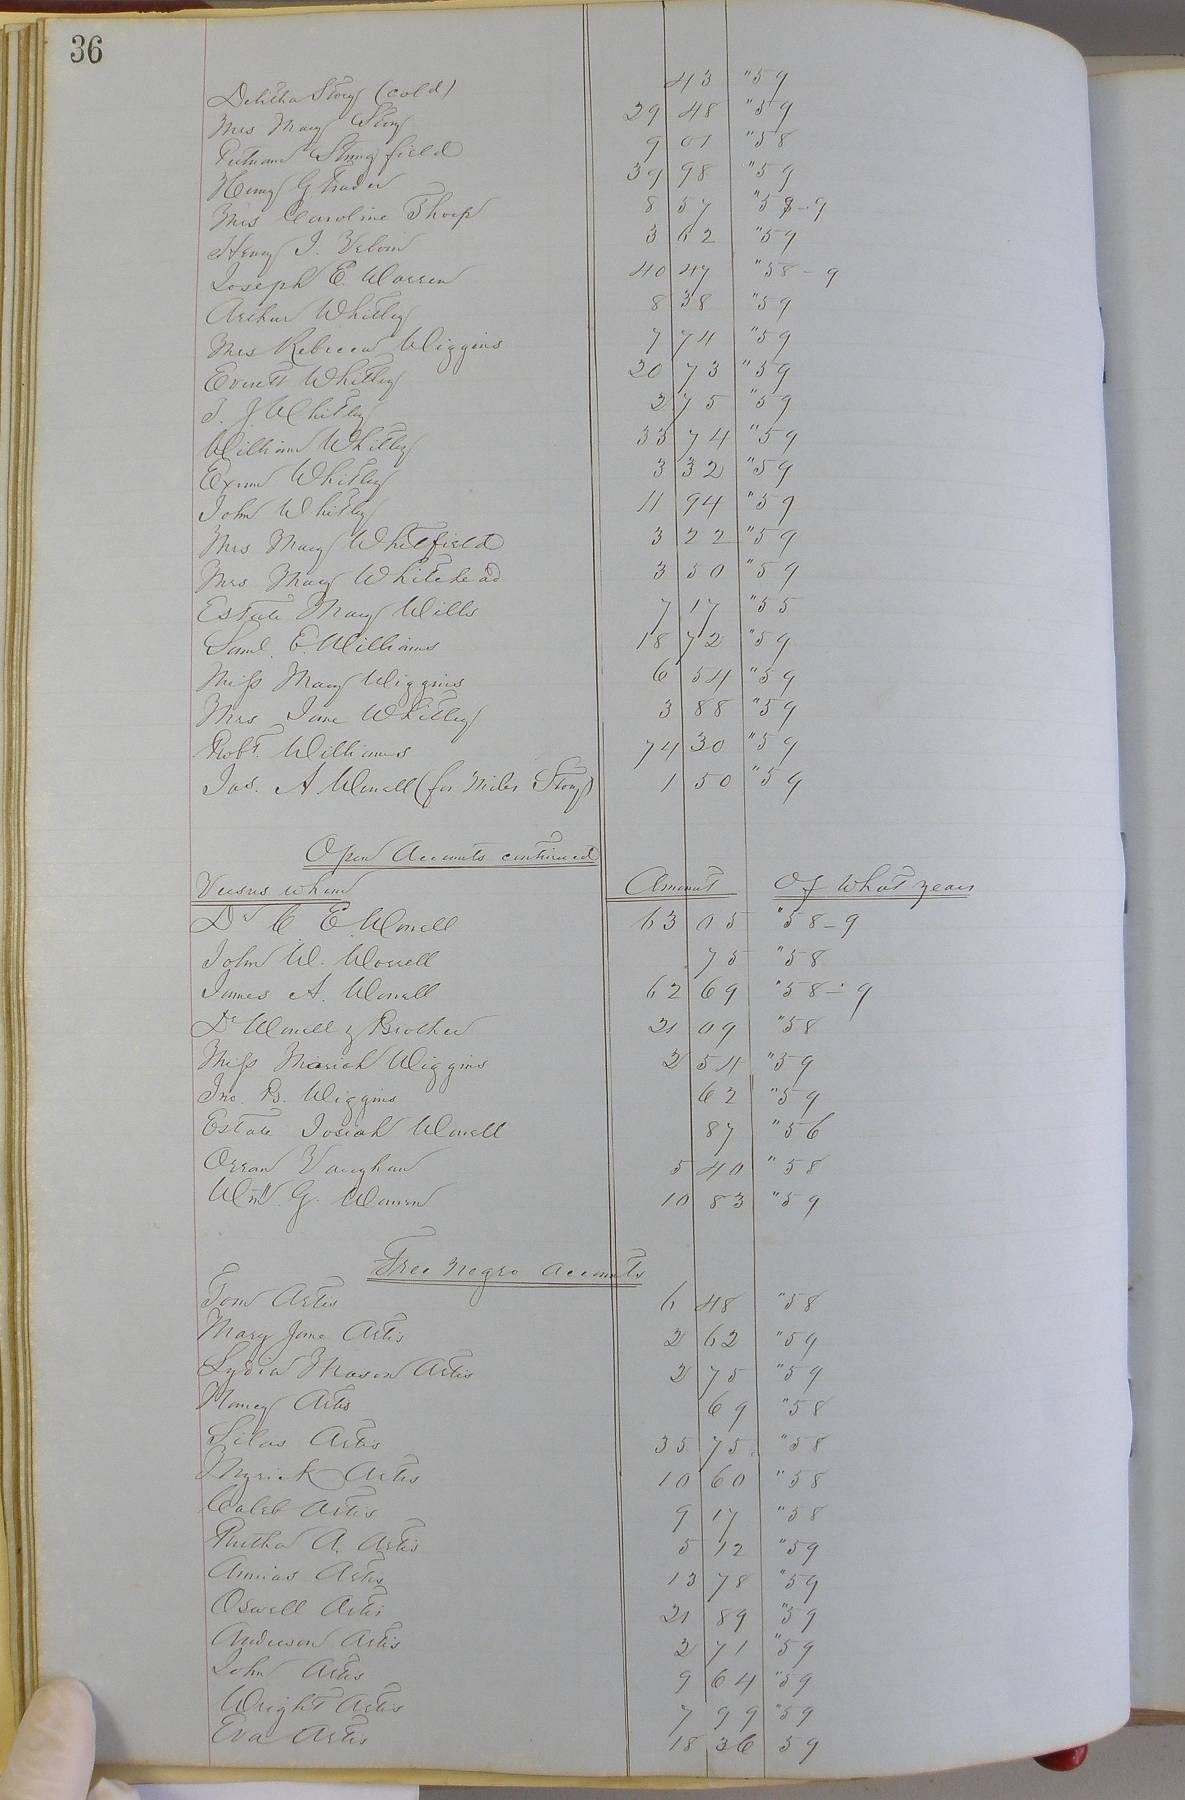 36
Delitha Story (cold) 43 "59
Mrs Mary Story 29 48 "59
Putnam Stringfield 9 01 "58
Henry G. Trader 39 98 "59
Mrs Caroline Thorp 8 57 "58-9
Henry J. 3 62 "59
Joseph E. Warren 40 47 "58-9
Arthur Whitley 8 38 "59
Mrs Rebecca Wiggins 7 74 "59
Everett Whitley 20 73 "59
T. J Whitley 2 75 "59
William Whitley 33 74 "59
Exum Whitley 3 32 "59
John Whitley 11 94 "59
Mrs Mary Whitfield 3 22 "59
Mrs Mary Whitehead 3 50 "59
Estate Mary Wills 7 17 "55
Saml. E. Williams 18 72 "59
Miss Mary Wiggins 6 54 "59
Mrs Jane Whitley 3 88 "59
Robt. Williams 74 30 "59
Jas. A Worrell (for Miles Story) 1 50 "59
Open Accounts continued
Versus whom Amount Of What years
Dr C E. Worrell 63 05 "58-9
John W. Worrell 75 "58
James A. Worrell 62 69 "58-9
Dr Worrell & Brother 21 09 "58
Miss Mariah Wiggins 2 54 "59
Jno. B. Wiggins 62 "59
Estate Josiah Worrell 87 "56
Orran Vaughan 5 40 "58
Wm. G. Warren 10 83 "59
Free Negro Accounts
Tom Artis 6 48 "58
Mary Jane Artis 2 62 "59
Lydia Mason Artis 2 75 "59
Nancy Artis 69 "58
Silas Artis 35 75. "58
Myrick Artis 10 60 "58
Caleb Artis 9 17 "58
Rutha A. Artis 5 12 "59
Annias Artis 13 78 "59
Oswell Artis 21 89 "59
Anderson Artis 2 71 "59
John Artis 9 64 "59
Wright Artis 7 99 "59
Eva Artis 18 36 59